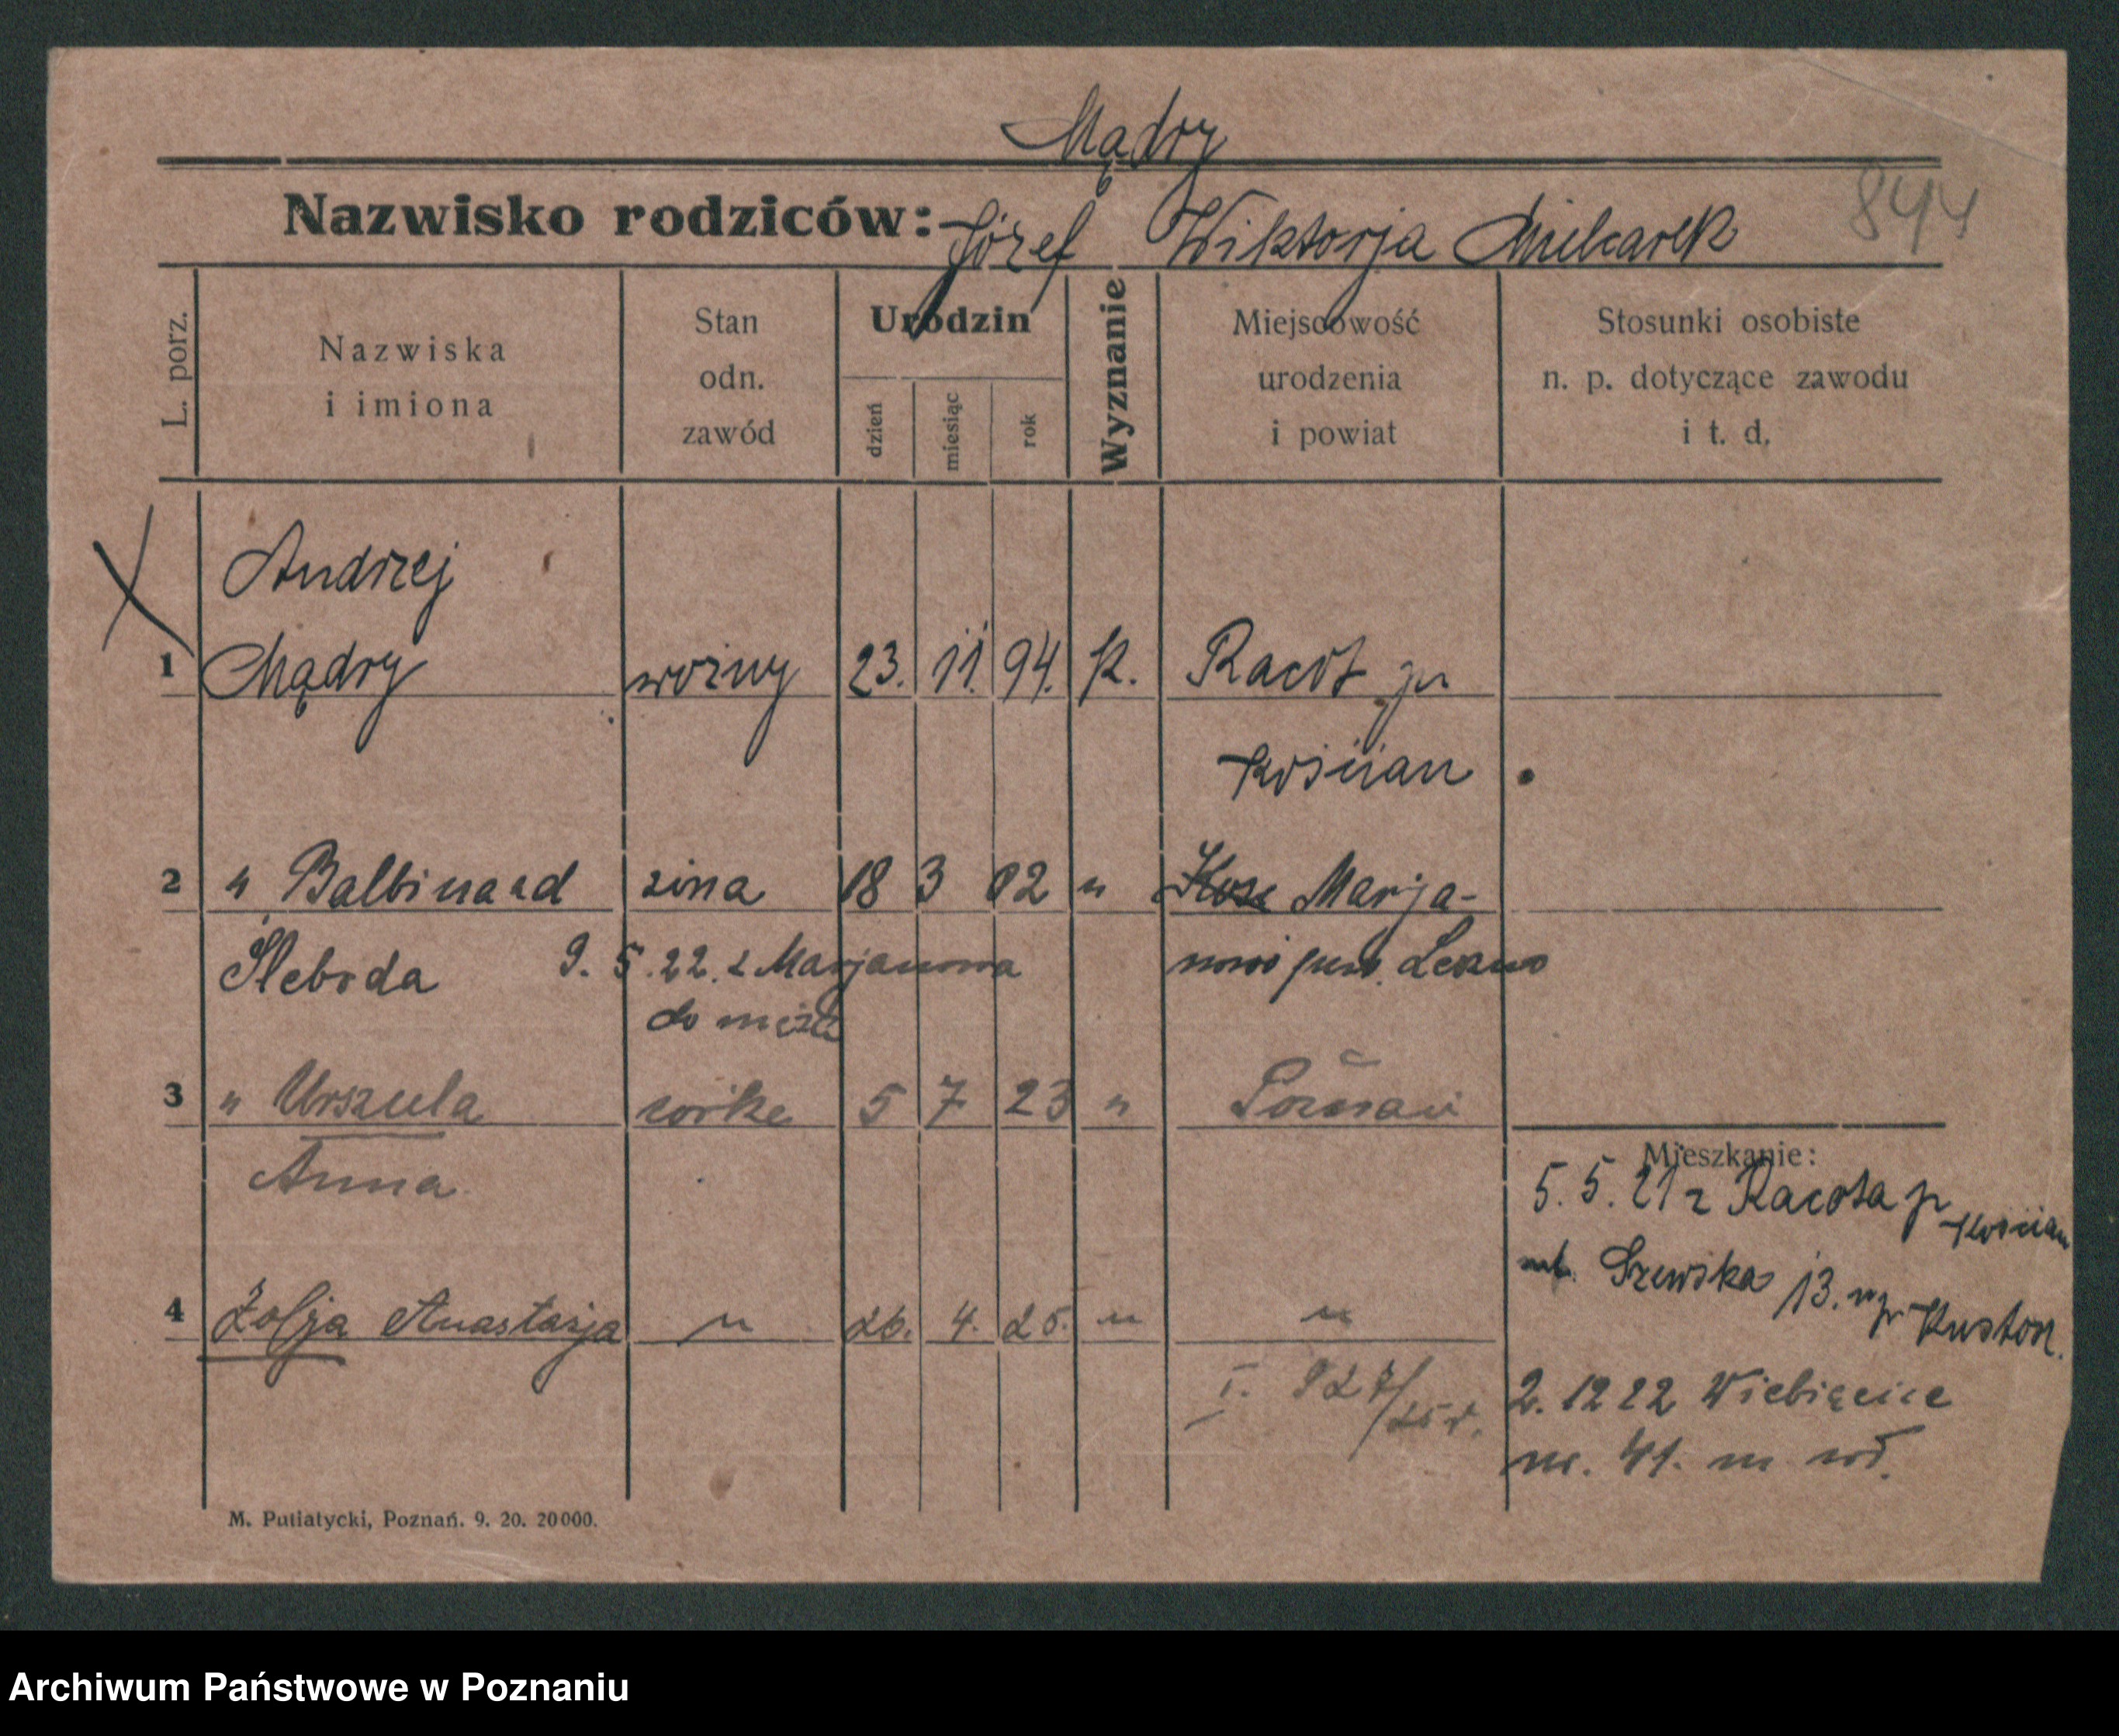 Mądry
844
Nazwisko rodziców: Józef Wiktorja Mielcarek
L. porz.
Nazwiska
i imiona
Stan
odn.
zawód
Urodzin
dzień
miesiąc
rok
Wyznanie
Miejscowość
urodzenia
i powiat
Stosunki osobiste
n. p. dotyczące zawodu
i t. d.
Andrzej
1 Mądry woźny 23. 11. 94. K. Racot p
Kościan
2 " Balbina zd żona 18 3 02 " Marja-
Śleboda 9. 5. 22. z Marjanowa
do męża
3 " Urszula córka 5 7 23 " Poznań
Anna
Mieszkanie:
5. 5. 21 z Racota p Kościan
Szewska 13.
4 Zofja Anastazja " 26. 4. 25. " "
I. 827/25 r.
2. 12 22 Wielbięcice
nr. 41. m wł.
M. Putiatycki, Poznań. 9. 20. 20000.
Archiwum Państwowe w Poznaniu